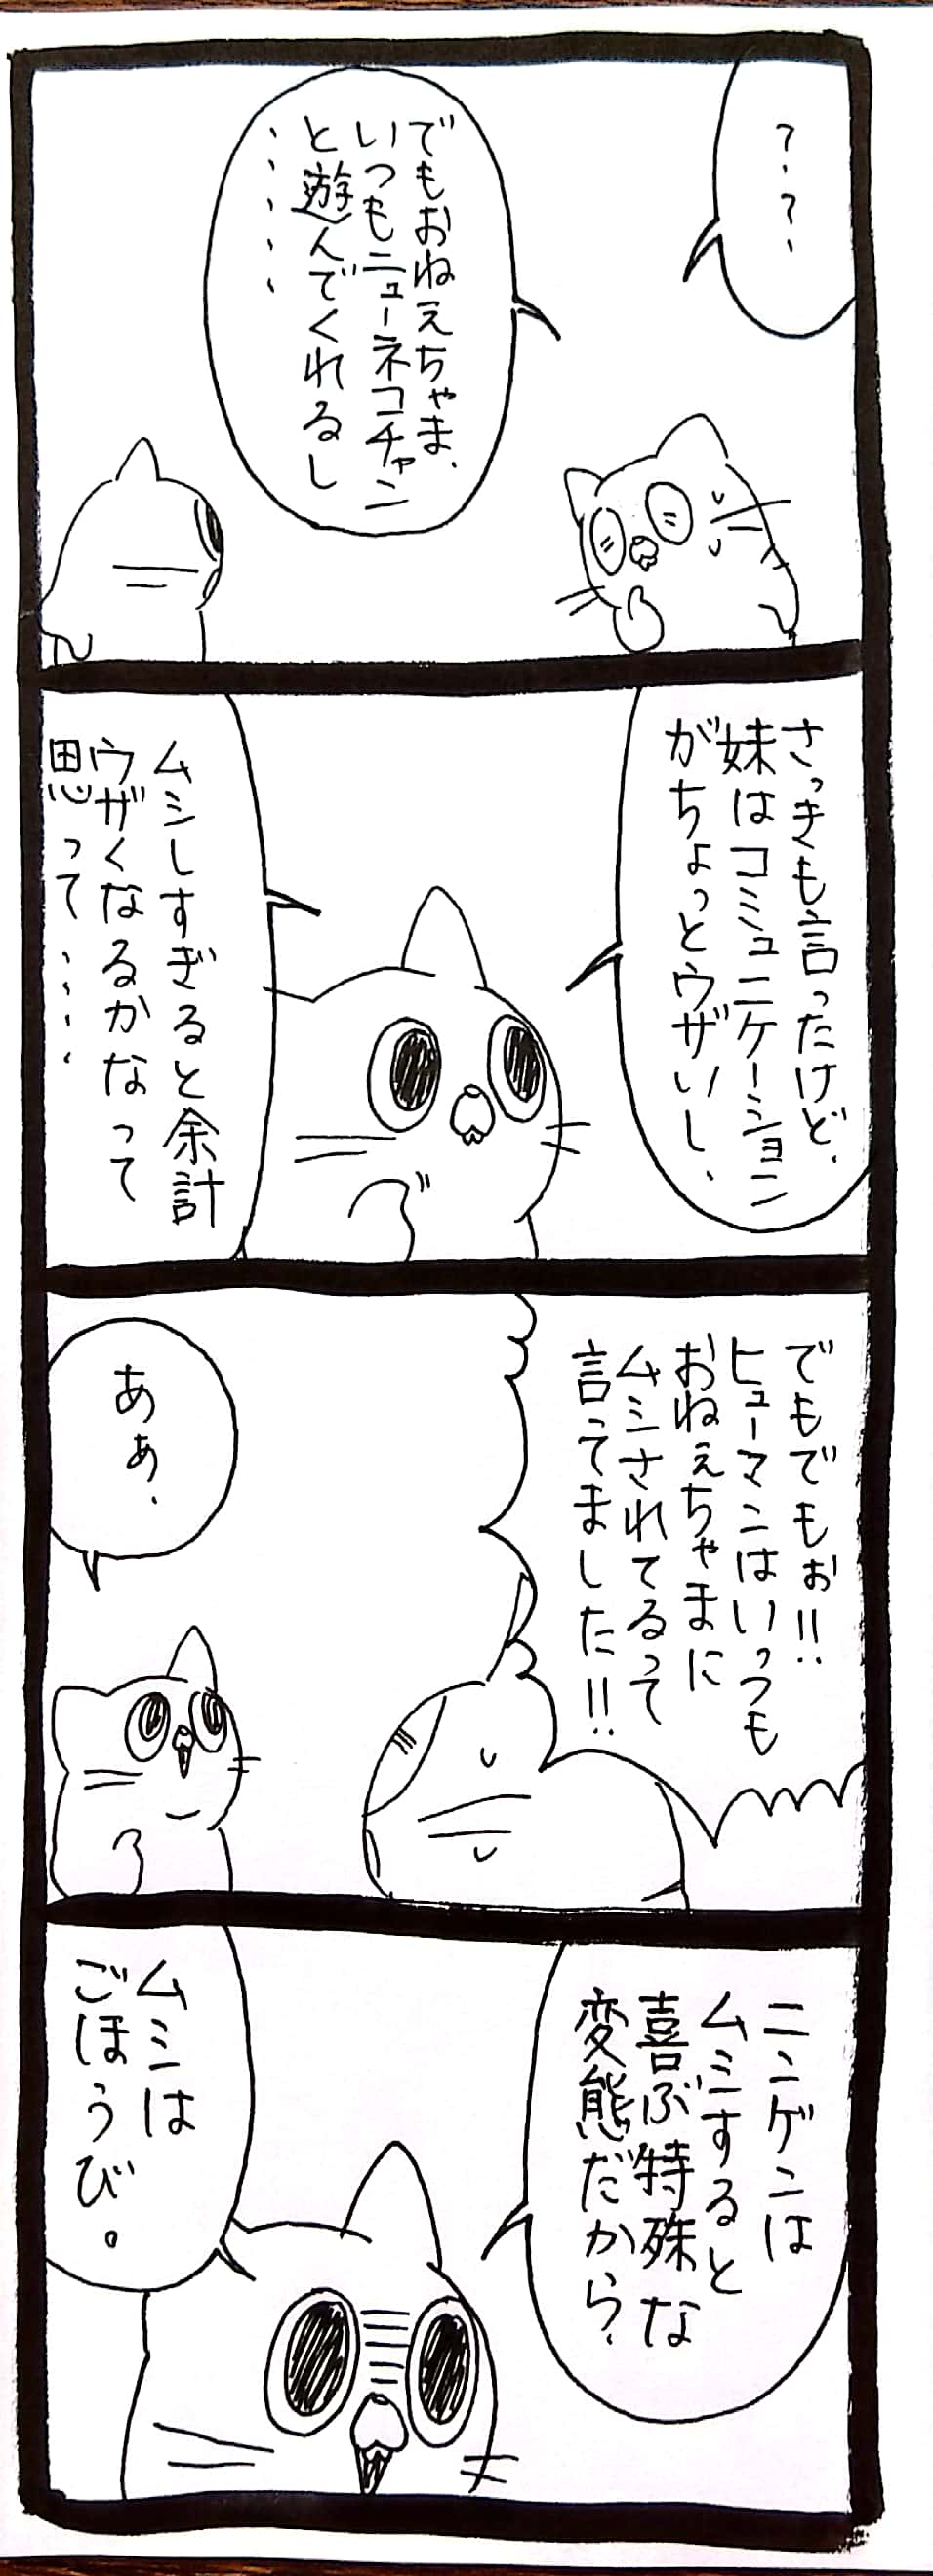 ？、？、
でもおねえちゃま、
いつもニューネコチャン
と遊んでくれるし
、、、、、
さっきも言ったけど、
妹はコミュニケーション
がちょっとウザいし、
ムシしすぎると余計
ウザくなるかなって
思って、、、、、
でもでもぉ!!
ヒューマンはいっつも
おねぇちゃまに
ムシされてるって
言ってました!!
あぁ、
ニンゲンは
ムシすると
喜ぶ特殊な
変態だから、
ムシは
ごほうび。